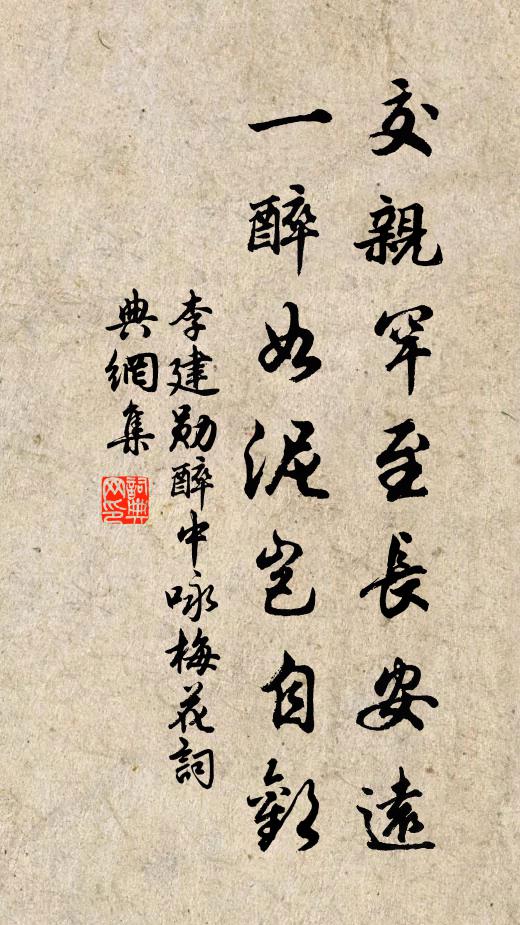 交親罕至長安遠
一醉如泥豈自歡
李建勋醉中咏梅花詞
典網集
詞典
网印